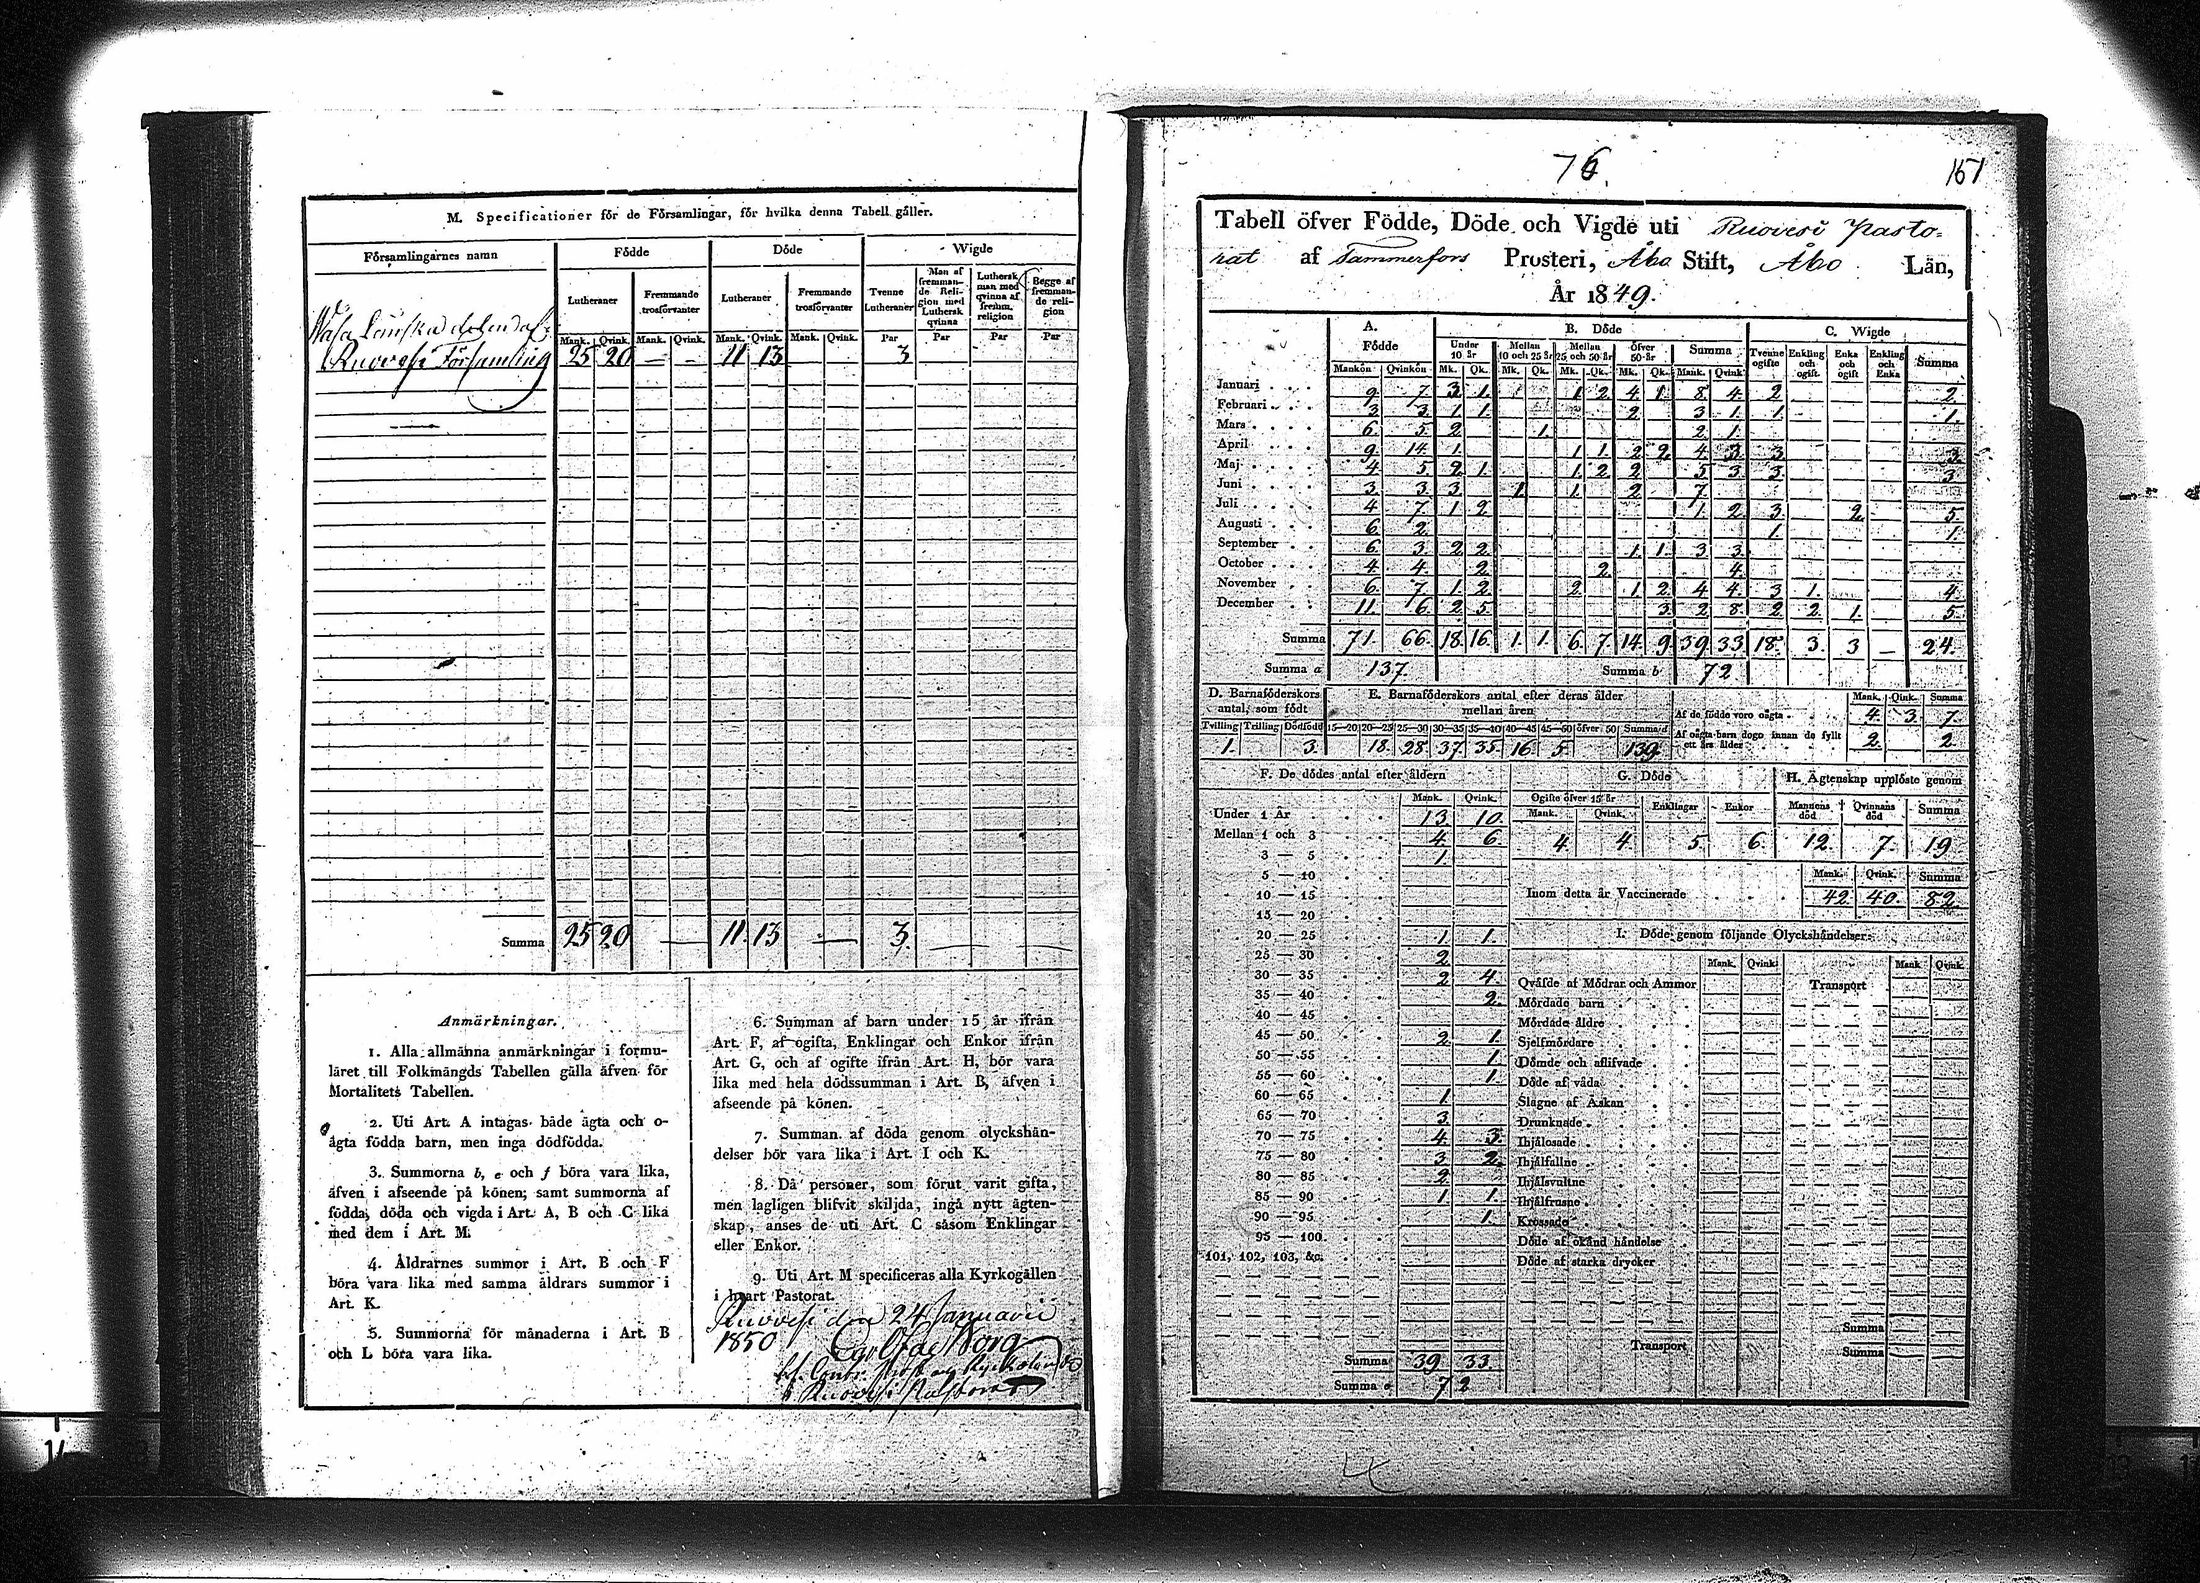 M. Specificationer för de Församlingar, för hvilka denna Tabell gäller.
Församlingarnes namn Födde Döde Wigde
Lutheraner Fremmande trosförvanter Lutheraner Fremmande trosförvanter Tvenne Lutheraner Man af fremmande Religion med Luthersk qvinna Luthersk man med qvinna af fremm. religion Begge af fremmande religion
Mank. Qvink. Mank. Qvink. Mank. Qvink. Mank. Qvink. Par Par Par Par
Wasa Länska delen af
Ruovesi Församling 25 20 — — 11 13 3
Summa 25 20 — 11. 13 — 3. — —
Anmärkningar.
1. Alla allmänna anmärkningar i formu-
läret till Folkmängds Tabellen gälla äfven för
Mortalitets Tabellen.
2. Uti Art. A intagas både ägta och o-
ägta födda barn, men inga dödfödda.
3. Summorna b, e och f böra vara lika,
äfven i afseende på könen; samt summorna af
födda, döda och vigda i Art. A, B och C lika
med dem i Art. M.
4. Åldrarnes summor i Art. B och F
böra vara lika med samma åldrars summor i
Art. K.
5. Summorna för månaderna i Art. B
och L böra vara lika.
6. Summan af barn under 15 år ifrån
Art. F, af ogifta, Enklingar och Enkor ifrån
Art. G, och af ogifte ifrån Art. H, bör vara
lika med hela dödssumman i Art. B, äfven i
afseende på könen.
7. Summan af döda genom olyckshän-
delser bör vara lika i Art. I och K.
8. Då personer, som förut varit gifta,
men lagligen blifvit skiljda, ingå nytt ägten-
skap, anses de uti Art. C såsom Enklingar
eller Enkor.
9. Uti Art. M specificeras alla Kyrkogällen
i hvart Pastorat.
Ruovesi den 24 Januarii
1850
76.
151
Tabell öfver Födde, Döde och Vigde uti Ruovesi Pasto-
rat af Tammerfors Prosteri, Åbo Stift, Åbo Län,
År 1849.
A. Födde B. Döde C. Wigde
Under 10 år Mellan 10 och 25 år Mellan 25 och 50 år öfver 50 år Summa Tvenne ogifte Enkling och ogift. Enka och ogift Enkling och Enka Summa
Mankön Qvinkön Mk. Qk. Mk. Qk. Mk. Qk. Mk. Qk. Mank. Qvink
Januari 9. 7. 3. 1. 1. 2. 4. 1. 8. 4. 2. 2.
Februari 3. 3. 1. 1. 2. 3. 1. 1. 1.
Mars 6. 5. 2. 1. 2. 1.
April 9. 14. 1. 1. 1. 2. 2. 4. 3. 3. 3.
Maj 4. 5. 2. 1. 1. 2. 2. 5. 3. 3. 3.
Juni 3. 3. 3. 1. 1. 2. 7.
Juli 4. 7. 1. 2. 1. 2. 3. 2. 5.
Augusti 6. 2. 1. 1.
September 6. 3. 2. 2. 1. 1. 3. 3.
October 4. 4. 2. 2. 4.
November 6. 7. 1. 2. 2. 1. 2. 4. 4. 3. 1. 4.
December 11. 6. 2. 5. 3. 2. 8. 2. 2. 1. 5.
Summa 71. 66. 18. 16. 1. 1. 6. 7. 14. 9. 39. 33. 18. 3. 3 — 24.
Summa a 137. Summa b 72
D. Barnaföderskors antal, som födt
E. Barnaföderskors antal efter deras ålder mellan åren
Tvilling Trilling Dödfödd 15—20 20—25 25—30 30—35 35—40 40—45 45—50 öfver 50 Summa d
1. 3. 18. 28. 37. 35. 16. 5. 139.
Mank. Qink. Summa
Af de födde voro oägta 4. 3. 7.
Af oägta barn dogo innan de fyllt ett års ålder 2. 2.
F. De dödes antal efter åldern
Mank. Qvink.
Under 1 År 13. 10.
Mellan 1 och 3 4. 6.
3 — 5 1.
5 — 10
10 — 15
15 — 20
20 — 25 1. 1.
25 — 30 2.
30 — 35 2. 4.
35 — 40 2.
40 — 45
45 — 50 2. 1.
50 — 55 1.
55 — 60 1.
60 — 65 1.
65 — 70 3.
70 — 75 4. 3.
75 — 80 3. 2.
80 — 85 2.
85 — 90 1. 1.
90 — 95 1.
95 — 100
101, 102, 103, &c.
Summa 39 33.
Summa e 72
G. Döde
Ogifte öfver 15 år Enklingar Enkor
Mank. Qvink.
4. 4. 5. 6.
H. Ägtenskap upplöste genom
Mannens död Qvinnans död Summa
12. 7. 19.
Mank. Qvink. Summa
Inom detta år Vaccinerade 42. 40. 82.
I. Döde genom följande Olyckshändelser:
Mank. Qvink. Mank Qvink.
Qväfde af Mödrar och Ammor Transport
Mördade barn
Mördade äldre
Sjelfmördare
Dömde och aflifvade
Döde af våda
Slagne af Åskan
Drunknade
Ihjälosade
Ihjälfallne
Ihjälsvultne
Ihjälfrusne
Krossade
Döde af okänd händelse
Döde af starka drycker
Summa
Transport Summa